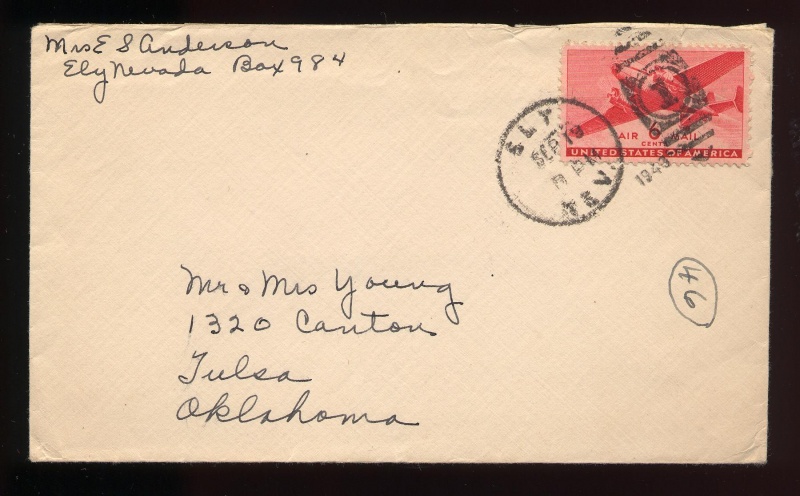 Mrs E S Anderson
Ely Nevada Box 984
ELY
SEP 19
PM
NEV.
1
AIR 6 MAIL
CENTS
UNITED STATES OF AMERICA
Mr & Mrs Young
1320 Canton
Tulsa
Oklahoma
46